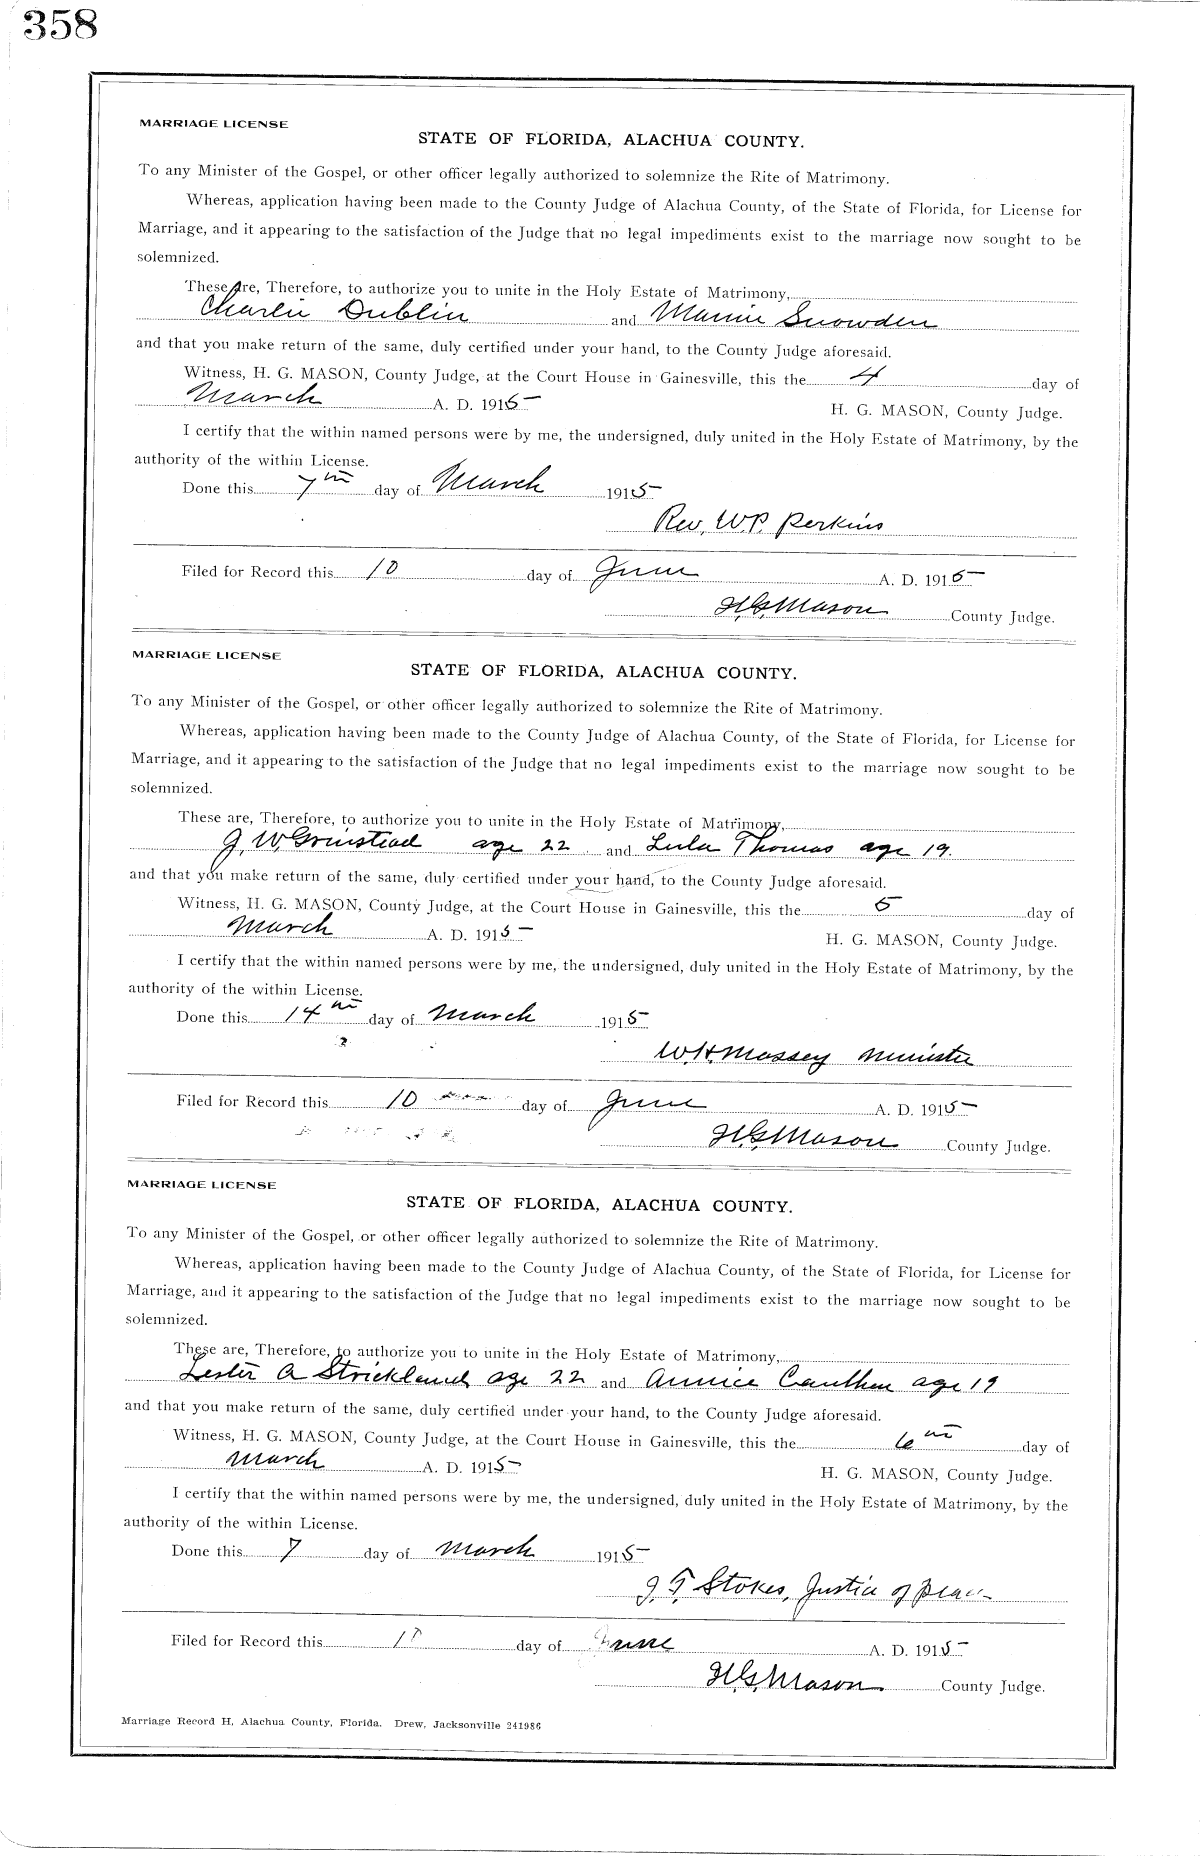 358
MARRIAGE LICENSE
STATE OF FLORIDA, ALACHUA COUNTY.
To any Minister of the Gospel, or other officer legally authorized to solemnize the Rite of Matrimony.
Whereas, application having been made to the County Judge of Alachua County, of the State of Florida, for License for
Marriage, and it appearing to the satisfaction of the Judge that no legal impediments exist to the marriage now sought to be
solemnized.
These are, Therefore, to authorize you to unite in the Holy Estate of Matrimony,
Charlie Dublin and Mamie Snowden
and that you make return of the same, duly certified under your hand, to the County Judge aforesaid.
Witness, H. G. MASON, County Judge, at the Court House in Gainesville, this the 4 day of
March A. D. 1915 H. G. MASON, County Judge.
I certify that the within named persons were by me, the undersigned, duly united in the Holy Estate of Matrimony, by the
authority of the within License.
Done this 7th day of March 1915
Rev, W.P. Perkins
Filed for Record this 10 day of June A. D. 1915
H.G. Mason County Judge.
MARRIAGE LICENSE
STATE OF FLORIDA, ALACHUA COUNTY.
To any Minister of the Gospel, or other officer legally authorized to solemnize the Rite of Matrimony.
Whereas, application having been made to the County Judge of Alachua County, of the State of Florida, for License for
Marriage, and it appearing to the satisfaction of the Judge that no legal impediments exist to the marriage now sought to be
solemnized.
These are, Therefore, to authorize you to unite in the Holy Estate of Matrimony,
J. W. Grinstead age 22 and Lula Thomas age 19.
and that you make return of the same, duly certified under your hand, to the County Judge aforesaid.
Witness, H. G. MASON, County Judge, at the Court House in Gainesville, this the 5 day of
March A. D. 1915 H. G. MASON, County Judge.
I certify that the within named persons were by me, the undersigned, duly united in the Holy Estate of Matrimony, by the
authority of the within License.
Done this 14th day of March 1915
W.H. Massey Minister
Filed for Record this 10 day of June A. D. 1915
H.G. Mason County Judge.
MARRIAGE LICENSE
STATE OF FLORIDA, ALACHUA COUNTY.
To any Minister of the Gospel, or other officer legally authorized to solemnize the Rite of Matrimony.
Whereas, application having been made to the County Judge of Alachua County, of the State of Florida, for License for
Marriage, and it appearing to the satisfaction of the Judge that no legal impediments exist to the marriage now sought to be
solemnized.
These are, Therefore, to authorize you to unite in the Holy Estate of Matrimony,
Lester A Strickland age 22 and Annice Cauthen age 19
and that you make return of the same, duly certified under your hand, to the County Judge aforesaid.
Witness, H. G. MASON, County Judge, at the Court House in Gainesville, this the 6th day of
March A. D. 1915 H. G. MASON, County Judge.
I certify that the within named persons were by me, the undersigned, duly united in the Holy Estate of Matrimony, by the
authority of the within License.
Done this 7 day of March 1915
J. T. Stokes, Justice of Peace
Filed for Record this day of June A. D. 1915
H.G. Mason County Judge.
Marriage Record H, Alachua County, Florida. Drew, Jacksonville 241986